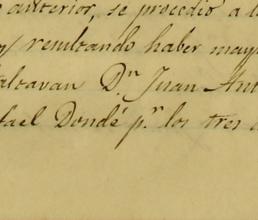 anterior, se procedió a l
y resultando haber may
altavan Dⁿ Juan Ant
fael Dondé pʳ los tres